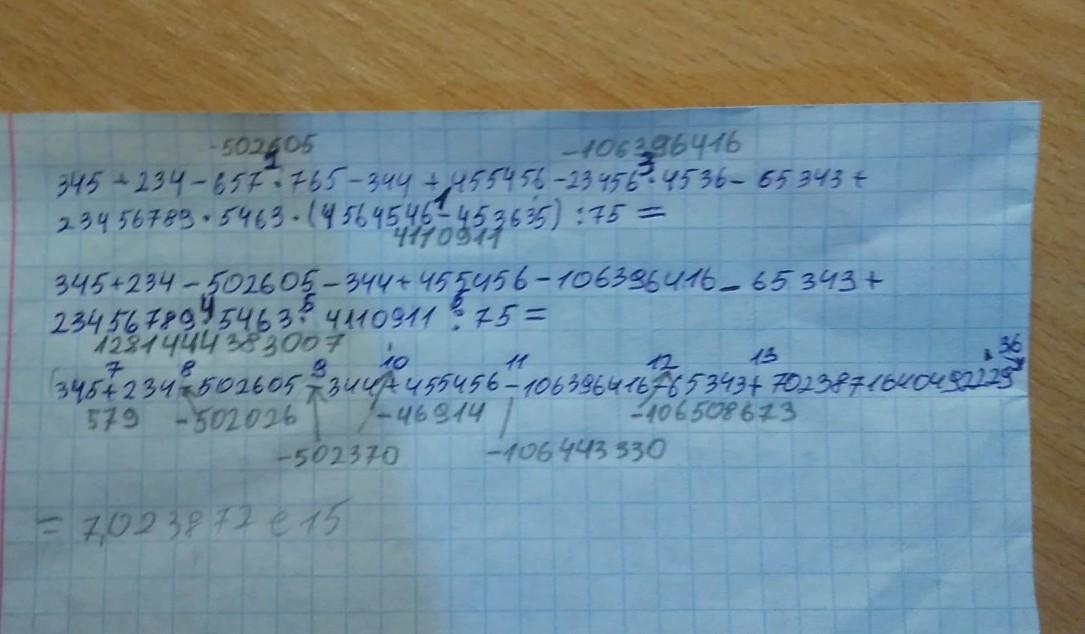 -502605 -106396416
345+234-657·765-344+455456-23456·4536-65343+
23456789·5463·(4564546-453635):75=
4110911
345+234-502605-344+455456-106396416-65343+
23456789·5463·4110911:75=
1281444383007
345+234-502605-344+455456-106396416-65343+7023871640492229
579 -502026 -46914 -106508673
-502370 -106443330
= 7,023872 e 15